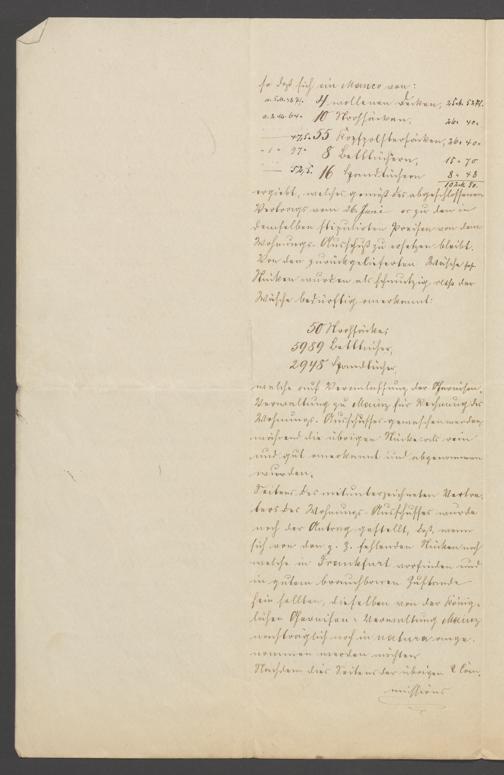 so daß sich ein Manco von:
4 wollenen Decken,
10 Strohsäcken,
55 Kopfpolstersäcken, 26. 40.
8 Betttüchern, 15. 70
16 Handtüchern 8. 48
ergiebt, welches gemäß des abgeschlossenen
Vertrags vom 26. Juni cr zu den in
demselben stipulirten Preisen von dem
Wohnungs-Ausschuß zu ersetzen bleibt.
Von den zurückgelieferten Wäsche
Stücken wurden als schmutzig, also der
Wäsche bedürftig anerkannt:
50 Strohsäcke;
5989 Betttücher,
2948 Handtücher,
welche auf Veranlassung der Garnison-
Verwaltung zu Mainz für Rechnung des
Wohnungs-Ausschusses gewaschen werden,
während die übrigen Stücke als rein
und gut anerkannt und abgenommen
wurden.
Seitens des mitunterzeichneten Vertre-
ters des Wohnungs-Ausschusses wurde
noch der Antrag gestellt, daß, wenn
sich von den z. Z. fehlenden Stücken noch
welche in Frankfurt vorfinden und
in gutem brauchbaren Zustande
sein sollten, dieselben von der König-
lichen Garnison-Verwaltung Mainz
nachträglich noch in natura ange-
nommen werden möchten.
Nachdem dies Seitens der übrigen Com-
missions